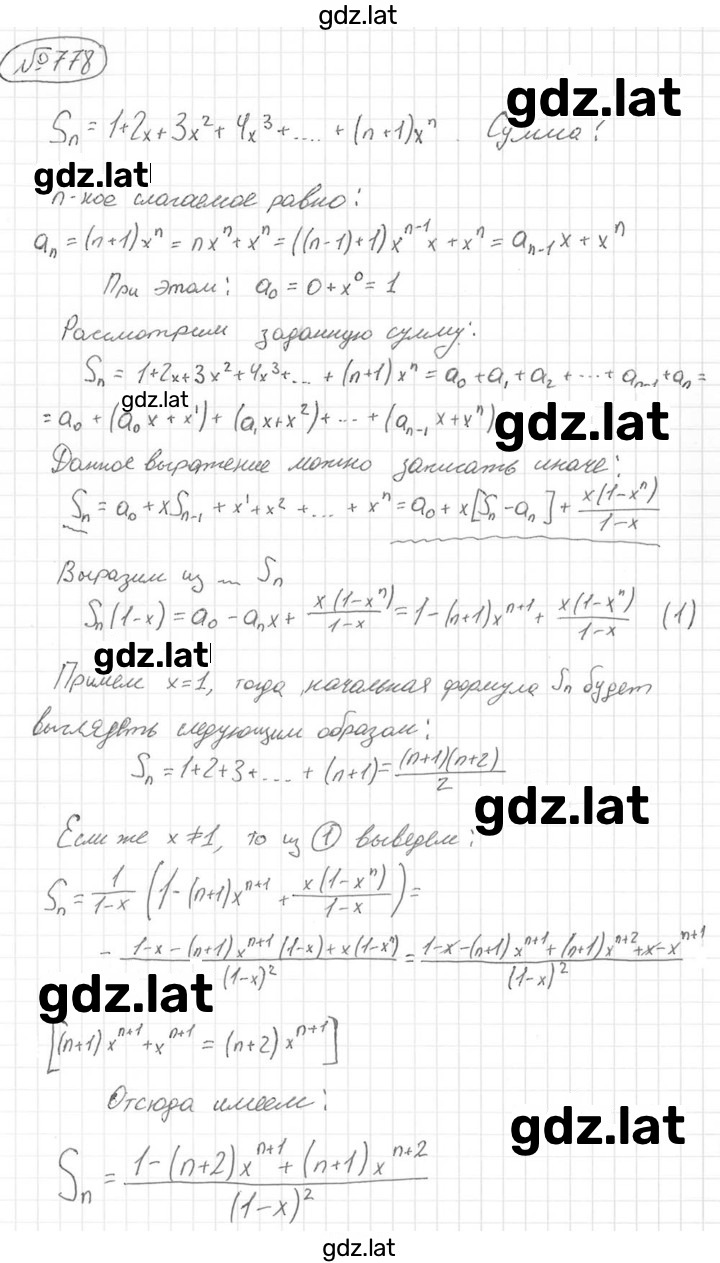 gdz.lat
№778
gdz.lat
Sₙ = 1+2x+3x²+4x³+....+(n+1)xⁿ. Сумма!
gdz.lat
n-ное слагаемое равно:
aₙ = (n+1)xⁿ = nxⁿ+xⁿ = ((n-1)+1)xⁿ⁻¹x + xⁿ = aₙ₋₁x + xⁿ
При этом: a₀ = 0 + x⁰ = 1
Рассмотрим заданную сумму:
Sₙ = 1+2x+3x²+4x³+... + (n+1)xⁿ = a₀+a₁+a₂+...+aₙ₋₁+aₙ =
gdz.lat
= a₀ + (a₀x + x¹) + (a₁x+x²)+...+ (aₙ₋₁x+xⁿ)
gdz.lat
Данное выражение можно записать иначе:
Sₙ = a₀+xSₙ₋₁ + x¹+x²+...+ xⁿ = a₀ + x[Sₙ-aₙ] + x(1-xⁿ)/(1-x)
Выразим из ~ Sₙ
Sₙ(1-x) = a₀ - aₙx + x(1-xⁿ)/(1-x) = 1-(n+1)xⁿ⁺¹ + x(1-xⁿ)/(1-x) (1)
gdz.lat
Примем x=1, тогда начальная формула Sₙ будет
выглядеть следующим образом:
Sₙ = 1+2+3+....+ (n+1) = (n+1)(n+2)/2
gdz.lat
Если же x≠1, то из (1) выведем:
Sₙ = 1/(1-x) (1-(n+1)xⁿ⁺¹ + x(1-xⁿ)/(1-x)) =
- (1-x-(n+1)xⁿ⁺¹(1-x)+x(1-xⁿ))/(1-x)² = (1-x-(n+1)xⁿ⁺¹+(n+1)xⁿ⁺²+x-xⁿ⁺¹)/(1-x)²
gdz.lat
[(n+1)xⁿ⁺¹+xⁿ⁺¹ = (n+2)xⁿ⁺¹]
Отсюда имеем:
gdz.lat
Sₙ = (1-(n+2)xⁿ⁺¹+(n+1)xⁿ⁺²)/(1-x)²
gdz.lat